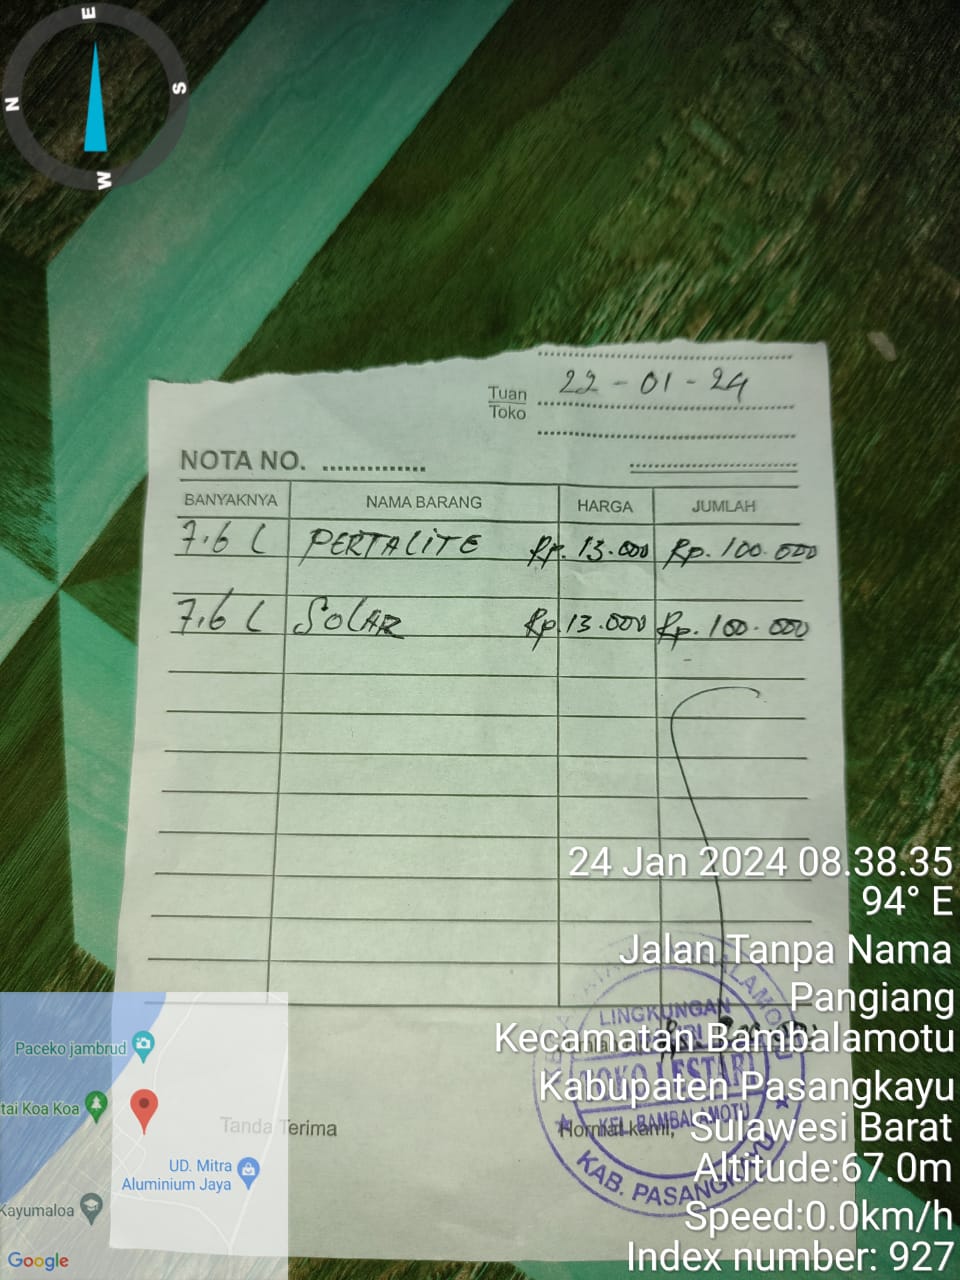 E
N
S
W
22 - 01 - 24
Tuan
Toko
NOTA NO. ..............
BANYAKNYA NAMA BARANG HARGA JUMLAH
7.6 L PERTALITE Rp. 13.000 Rp. 100.000
7.6 L SOLAR Rp. 13.000 Rp. 100.000
24 Jan 2024 08.38.35
94° E
Jalan Tanpa Nama
Pangiang
Kecamatan Bambalamotu
Kabupaten Pasangkayu
Sulawesi Barat
Altitude:67.0m
Speed:0.0km/h
Index number: 927
LINGKUNGAN
TOKO LESTARI
KEL. BAMBALAMOTU
KAB. PASANGKAYU
Tanda Terima
Hormat kami,
Paceko jambrud
tai Koa Koa
UD. Mitra
Aluminium Jaya
Kayumaloa
Google